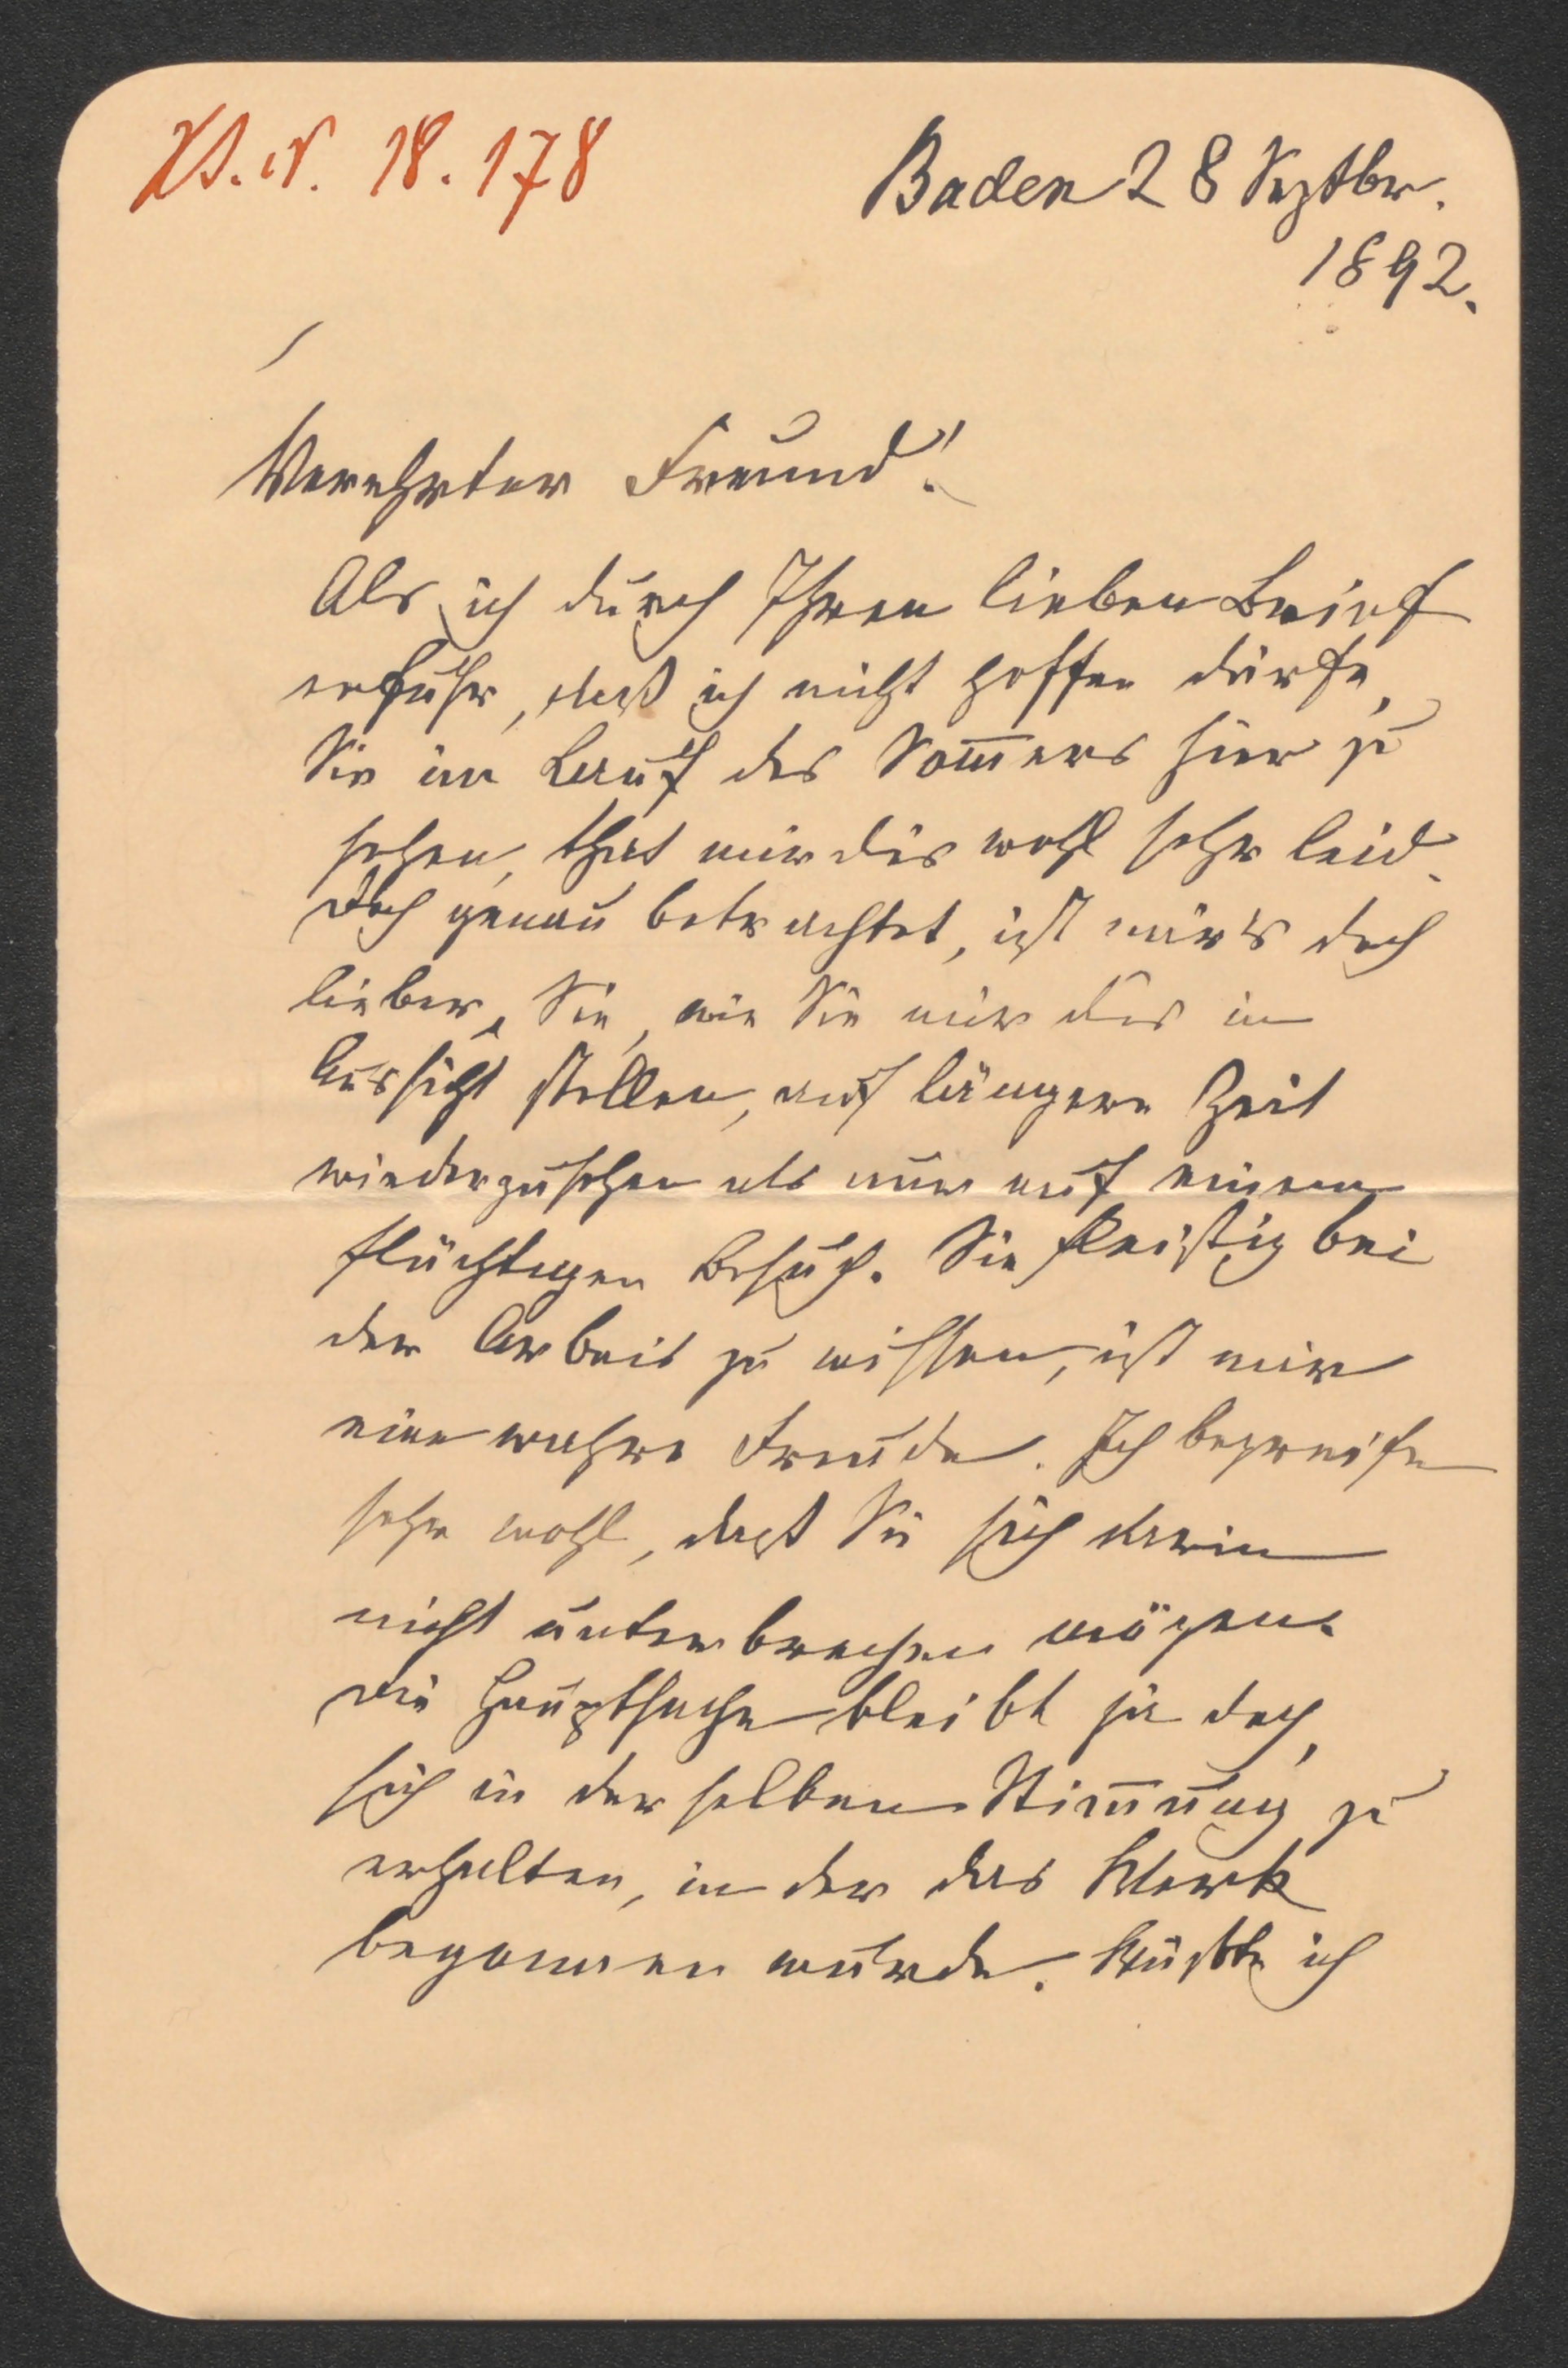 Hs. N. 18.178
Baden 28 Septbr.
1892.
Verehrter Freund!
Als ich durch Ihren lieben Brief
erfuhr, daß ich nicht hoffen dürfe,
Sie im Lauf des Som̄ers hier zu
sehen, that mir dies wohl sehr leid.
Doch genau betrachtet, ist mir's doch
lieber, Sie, wie Sie mir dies in
Aussicht stellen, auf längere Zeit
wiederzusehen als nur auf einen
flüchtigen Besuch. Sie fleißig bei
der Arbeit zu wissen, ist mir
eine wahre Freude. Ich begreife
sehr wohl, daß Sie sich darin
nicht unterbrechen mögen.
Die Hauptsache bleibt ja doch,
sich in derselben Stim̄ung zu
erhalten, in der das Werk
begonnen wurde. Wüßte ich